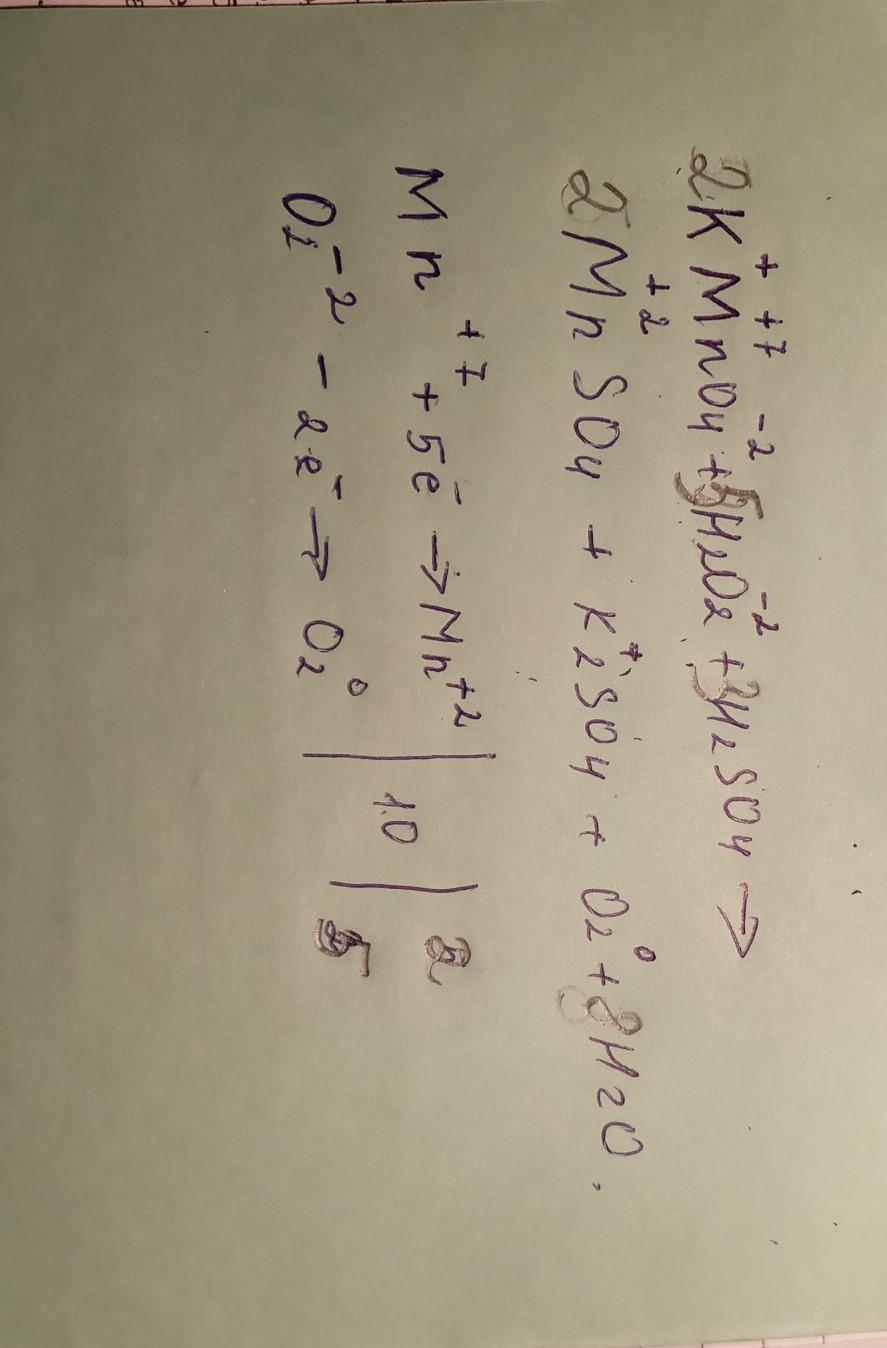 2K⁺Mn⁺⁷O₄⁻² + 5H₂O₂⁻² + 3H₂SO₄ →
2Mn⁺²SO₄ + K₂⁺SO₄ + O₂⁰ + 8H₂O.
Mn⁺⁷ + 5e⁻ → Mn⁺² | 10 | 2
O₂⁻² - 2e⁻ → O₂⁰ | | 5